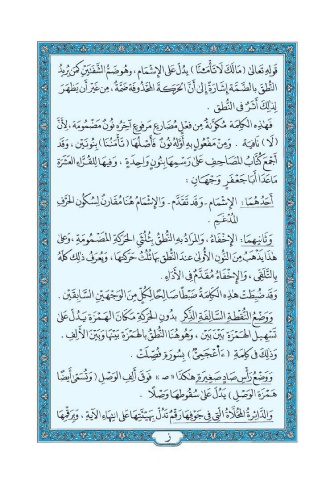 قَوْلِهِ تَعَالَىٰ (مَالَكَ لَا تَأْمَ۬نَّا) يَدُلُّ عَلَى الْإِشْمَامِ ، وَهُوَ ضَمُّ الشَّفَتَيْنِ كَمَنْ يُرِيدُ
النُّطْقَ بِالضَّمَّةِ إِشَارَةً إِلَى أَنَّ الْحَرَكَةَ الْمَحْذُوفَةَ ضَمَّةٌ ، مِنْ غَيْرِ أَنْ يَظْهَرَ
لِذَلِكَ أَثَرٌ فِي النُّطْقِ .
فَهَذِهِ الْكَلِمَةُ مُكَوَّنَةٌ مِنْ فِعْلٍ مُضَارِعٍ مَرْفُوعٍ آخِرُهُ نُونٌ مَضْمُومَةٌ ، لِأَنَّ
(لَا) نَافِيَةٌ . وَمِنْ مَفْعُولٍ بِهِ أَوَّلُهُ نُونٌ فَأَصْلُهَا (تَأْمَنُنَا) بِنُونَيْنِ ، وَقَدْ
أَجْمَعَ كُتَّابُ الْمَصَاحِفِ عَلَى رَسْمِهَا بِنُونٍ وَاحِدَةٍ ، وَفِيهَا لِلْقُرَّاءِ الْعَشَرَةِ
مَاعَدَا أَبَا جَعْفَرٍ وَجْهَانِ :
أَحَدُهُمَا : الْإِشْمَامُ - وَقَدْ تَقَدَّمَ - وَالْإِشْمَامُ هُنَا مُقَارِنٌ لِسُكُونِ الْحَرْفِ
الْمُدْغَمِ .
وَثَانِيهِمَا : الْإِخْفَاءُ ، وَالْمُرَادُ بِهِ النُّطْقُ بِثُلُثَيِ الْحَرَكَةِ الْمَضْمُومَةِ ، وَعَلَى
هَذَا يَذْهَبُ مِنَ النُّونِ الْأُولَى عِنْدَ النُّطْقِ بِهَا ثُلُثُ حَرَكَتِهَا ، وَيُعْرَفُ ذَلِكَ كُلُّهُ
بِالتَّلَقِّي ، وَالْإِخْفَاءُ مُقَدَّمٌ فِي الْأَدَاءِ .
وَقَدْ ضُبِطَتْ هَذِهِ الْكَلِمَةُ ضَبْطًا صَالِحًا لِكُلٍّ مِنَ الْوَجْهَيْنِ السَّابِقَيْنِ .
وَوَضْعُ النُّقْطَةِ السَّالِفَةِ الذِّكْرِ بِدُونِ الْحَرَكَةِ مَكَانَ الْهَمْزَةِ يَدُلُّ عَلَى
تَسْهِيلِ الْهَمْزَةِ بَيْنَ بَيْنَ ، وَهُوَ هُنَا النُّطْقُ بِالْهَمْزَةِ بَيْنَهَا وَبَيْنَ الْأَلِفِ .
وَذَلِكَ فِي كَلِمَةِ (ءَا۬عْجَمِىٌّ) بِسُورَةِ فُصِّلَتْ .
وَوَضْعُ رَأْسِ صَادٍ صَغِيرَةٍ هَكَذَا « صـ » فَوْقَ أَلِفِ الْوَصْلِ (وَتُسَمَّى أَيْضًا
هَمْزَةَ الْوَصْلِ) يَدُلُّ عَلَى سُقُوطِهَا وَصْلًا .
وَالدَّائِرَةُ الْمُحَلَّاةُ الَّتِي فِي جَوْفِهَا رَقْمٌ تَدُلُّ بِهَيْئَتِهَا عَلَى انْتِهَاءِ الْآيَةِ ، وَبِرَقْمِهَا
ز